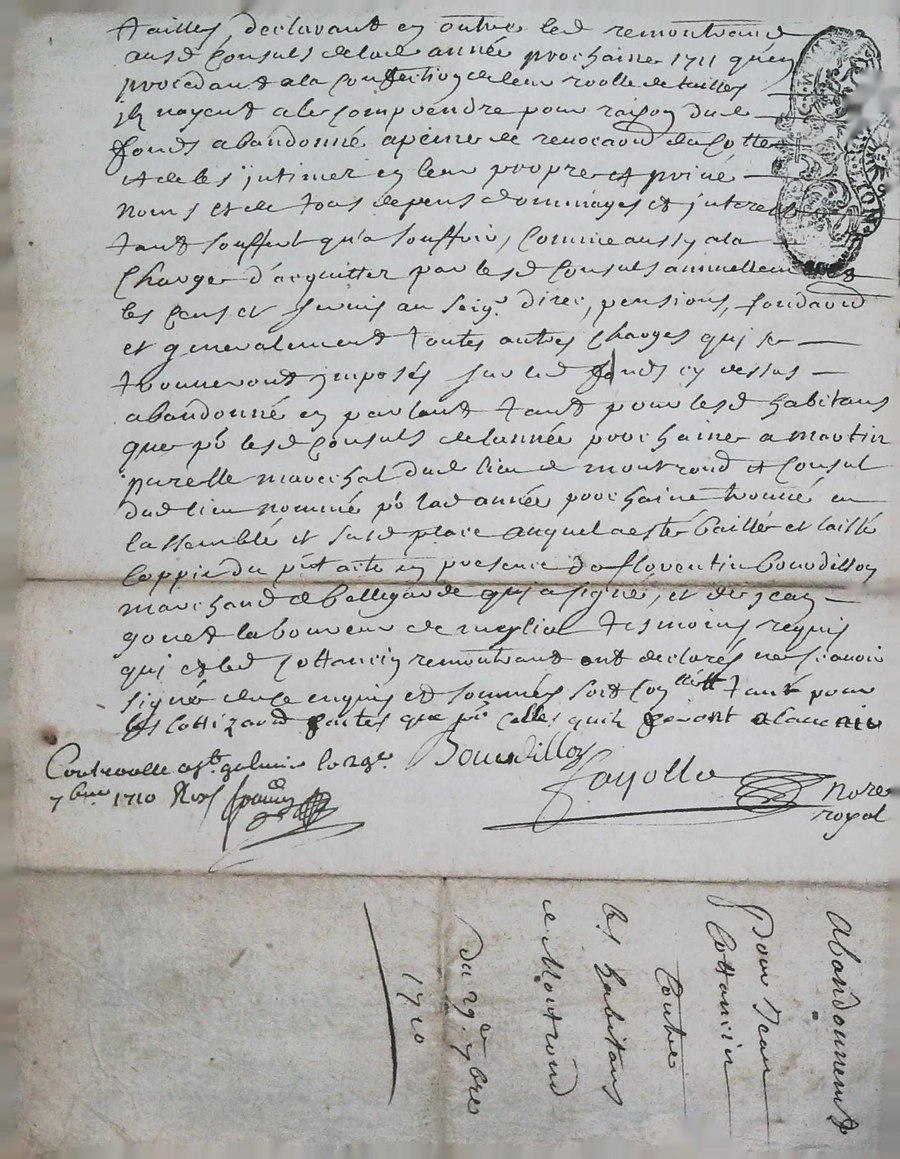 tailles, declarant en outre led remontrand
ausd Consuls de lad année prochaine 1711 qu'en
procedant a la Confection de leur roolle de tailles
ils nayent a le Comprendre pour raison dud
fonds abandonné apeine de renvoy de Cotte
et de les jntimer en leur propre et privé
noms et de tous depens dommages et jnterests
tant souffert qu'a souffrir, Comme aussy a la
Charge d'acquitter par lesd Consuls annuellement
les Cens et servis au seigr direc, pensions, fondaõn
et generalement toutes autres Charges qui se
trouveront jmposés sur led fonds cy dessus
abandonné en parlant tant pour lesd habitans
que pr lesd Consuls de lannée prochaine a martin
marechal dud lieu de montrond et Consul
dud lieu nommé pr lad année prochaine trouvé en
lassemblé et susd place auquel a esté baillé et laissé
Coppie du pnt acte en presence de florentin Bourdillon
marchand de Bellegarde qui a signé, et de jean
laboureur de tesmoins requis
qui et led Cottancin remontrant ont declarés ne scavoir
signé de ce enquis et sommés soit tant pour
les Cottizaõns faites que pr Celles qui se feront a lavenir
Bourdillon
Fayolle nore
royal
Controolle a st galmier le 29e
7bre 1710
Abandonnement
Pour Jean
Cottancin
Contre
les habitans
de Montrond
du 29e 7bre
1710